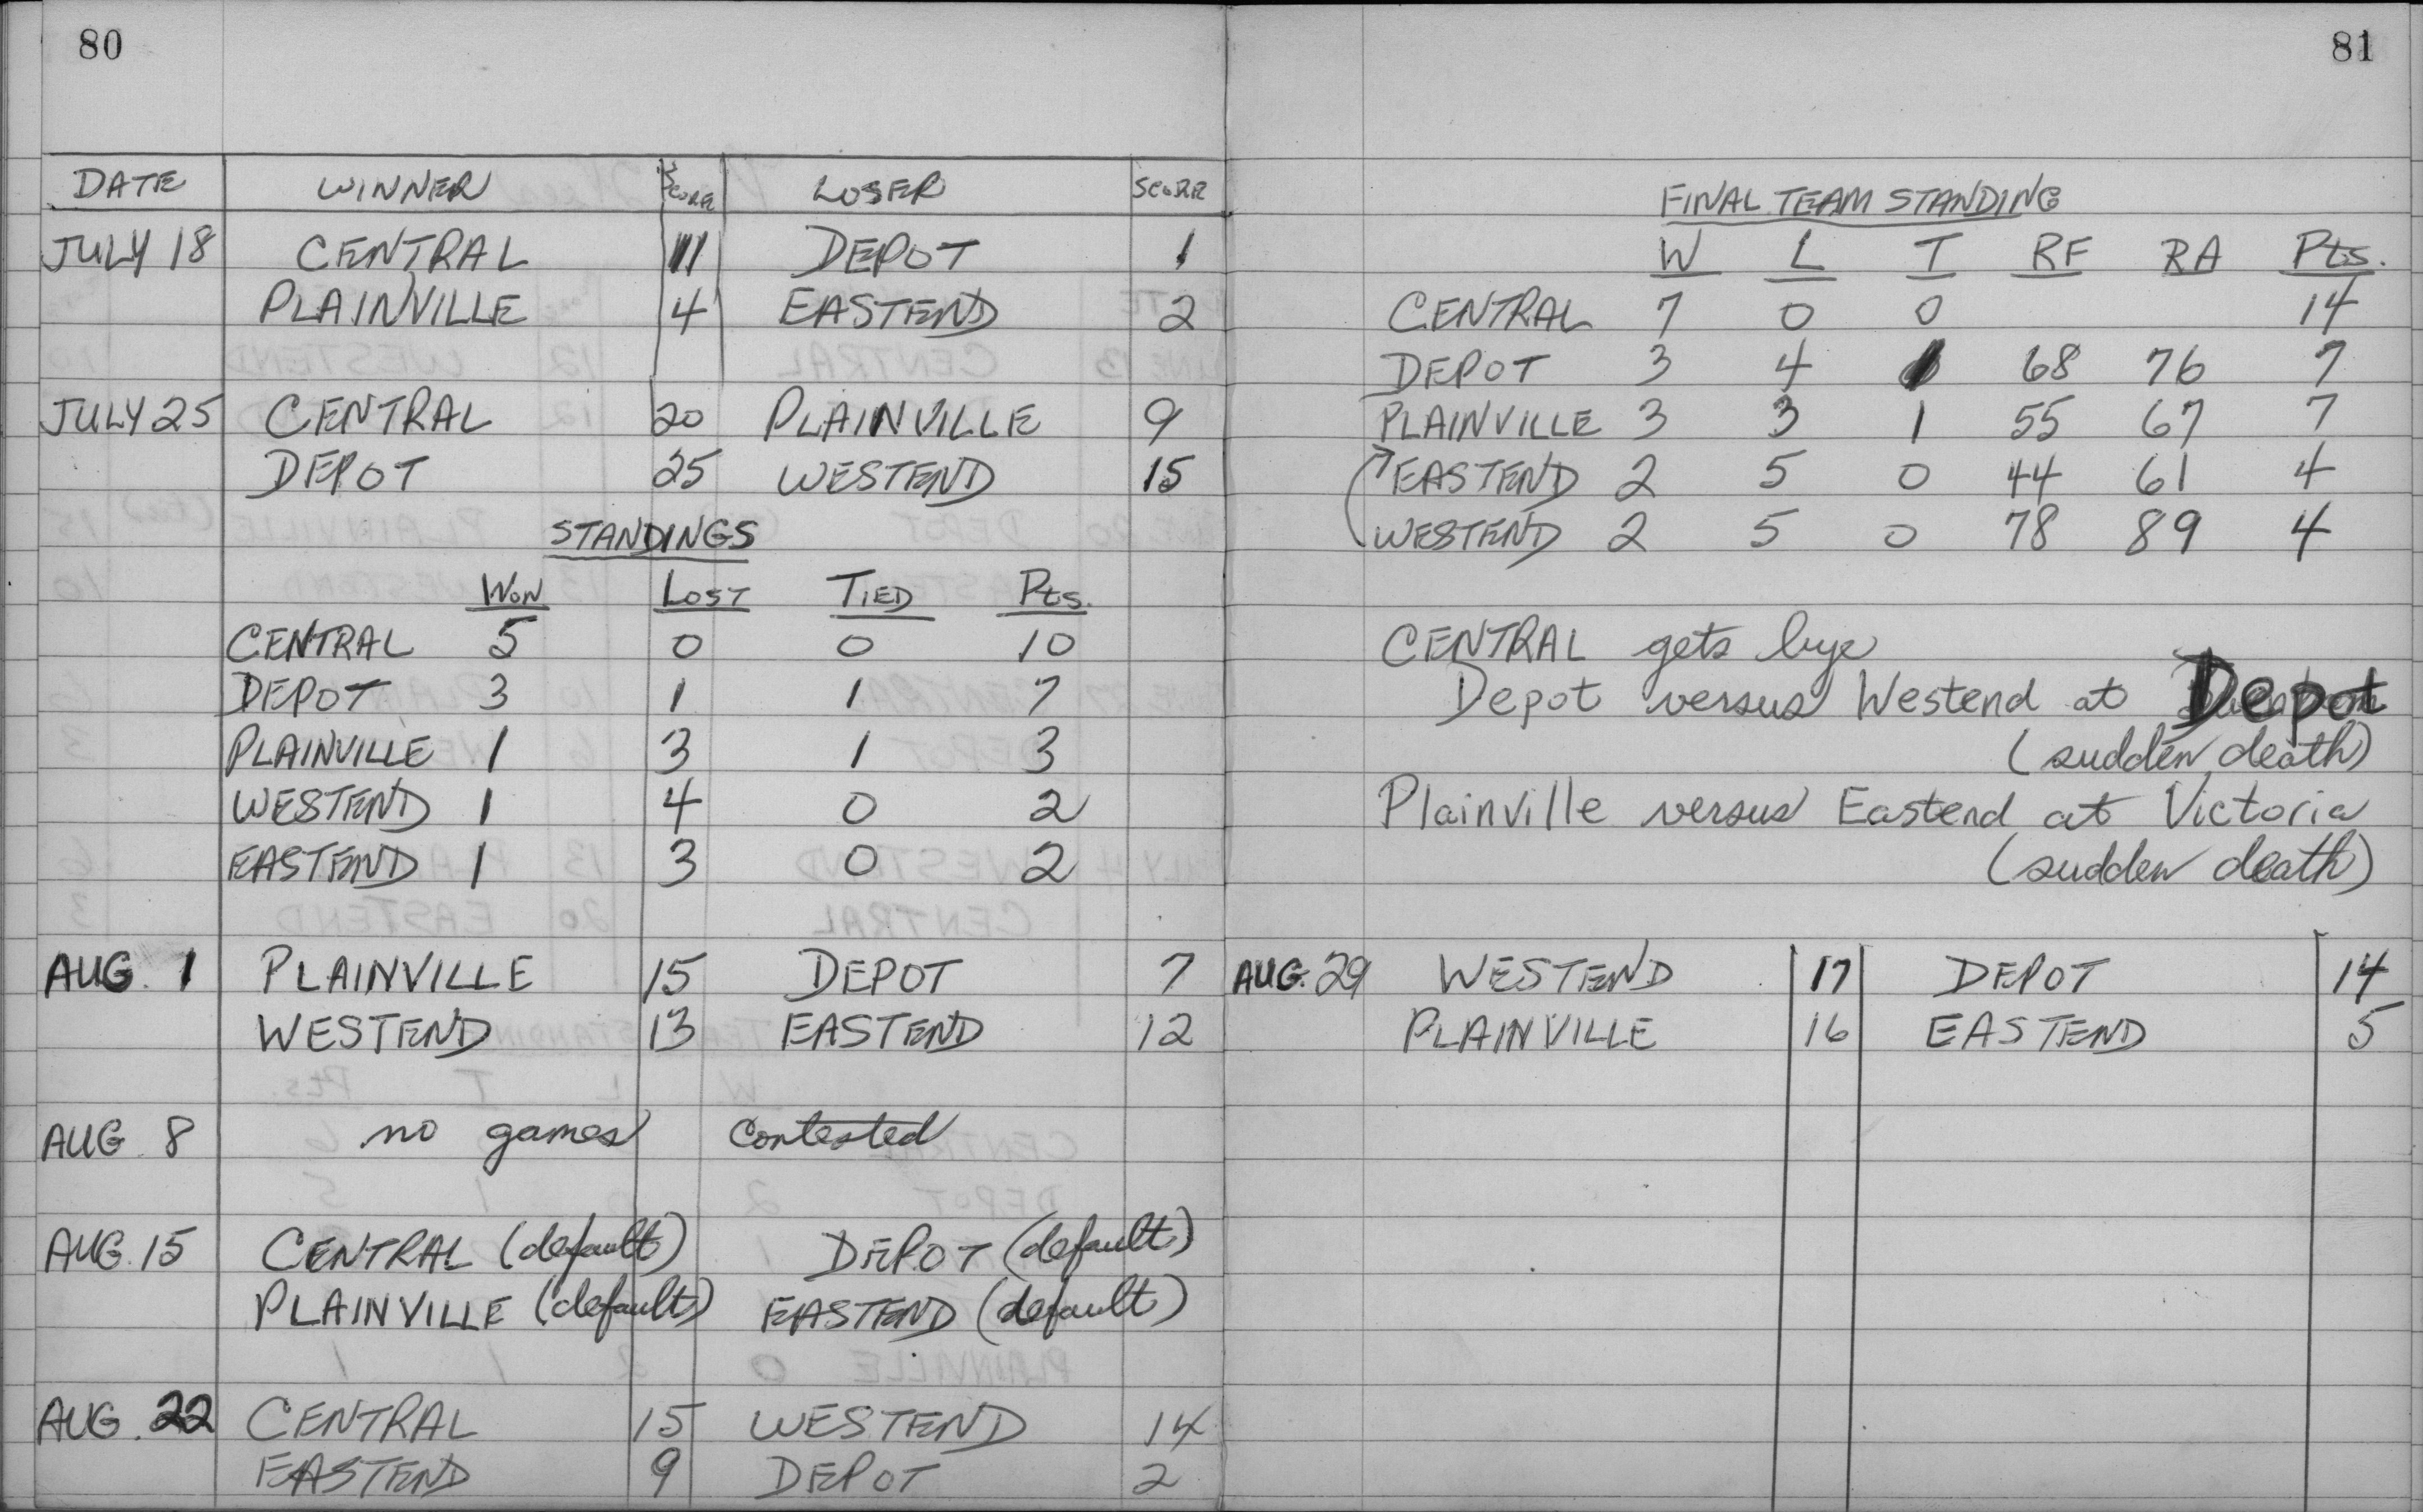 80
DATE WINNER SCORE LOSER SCORE
JULY 18 CENTRAL 11 DEPOT 1
PLAINVILLE 4 EASTEND 2
JULY 25 CENTRAL 20 PLAINVILLE 9
DEPOT 25 WESTEND 15
STANDINGS
WON LOST TIED Pts.
CENTRAL 5 0 0 10
DEPOT 3 1 1 7
PLAINVILLE 1 3 1 3
WESTEND 1 4 0 2
EASTEND 1 3 0 2
AUG. 1 PLAINVILLE 15 DEPOT 7
WESTEND 13 EASTEND 12
AUG 8 no games contested
AUG. 15 CENTRAL (default) DEPOT (default)
PLAINVILLE (default) EASTEND (default)
AUG. 22 CENTRAL 15 WESTEND 14
EASTEND 9 DEPOT 2
81
FINAL TEAM STANDING
W L T RF RA Pts.
CENTRAL 7 0 0 14
DEPOT 3 4 1 68 76 7
PLAINVILLE 3 3 1 55 67 7
EASTEND 2 5 0 44 61 4
WESTEND 2 5 0 78 89 4
CENTRAL gets bye
Depot versus Westend at Depot
(sudden death)
Plainville versus Eastend at Victoria
(sudden death)
AUG. 29 WESTEND 17 DEPOT 14
PLAINVILLE 16 EASTEND 5